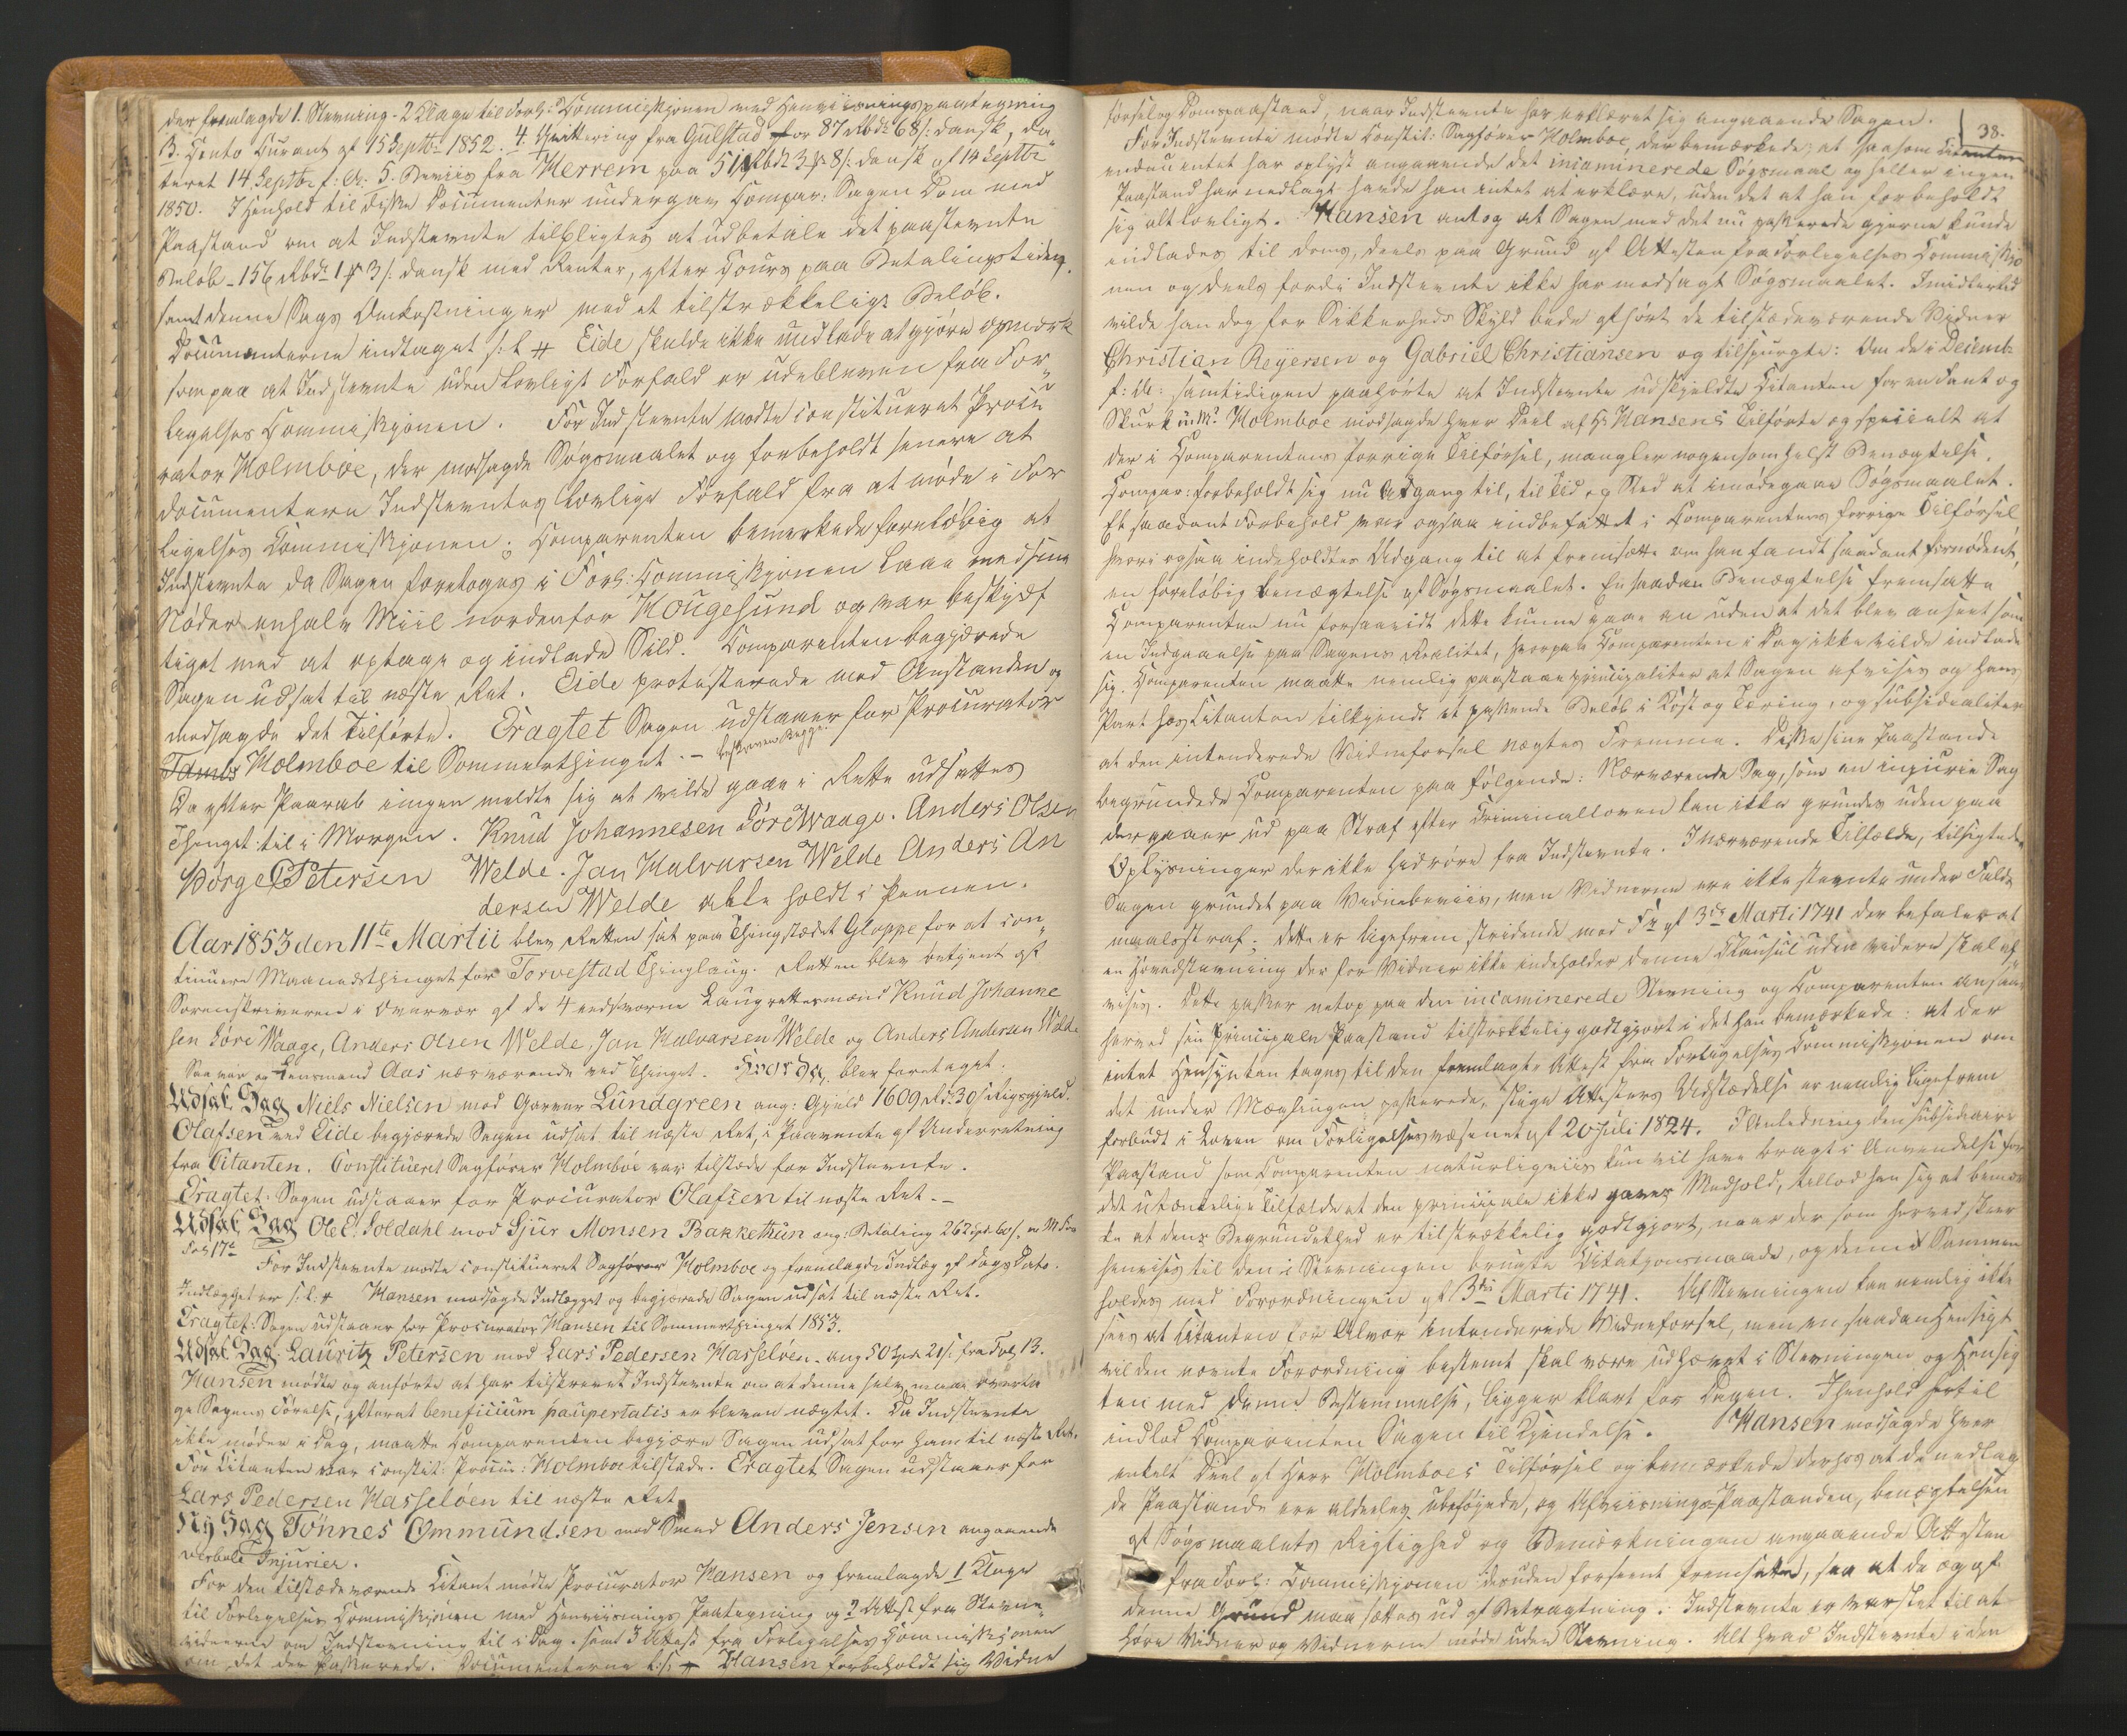 der fremlagde 1. Stevning. 2 Klage til Forl: Commissjonen med Henviisningspaategning
3. Conto Curant af 15 Septb. 1852. 4. Qvittering fra Gulstad for 87 Rbd. 68 /: dansk, da„
teret 14. Septbr. f: A: 5. Beviis fra Herrem paa 51 Rbd. 3 # 8 /: dansk af 14 Septbr
1850. I Henhold til disse Documenter undergav Compar: Sagen Dom med
Paastand om at Indstevnte tilpligtes at udbetale det paastevnte
Beløb _ 156 Rbd. 1 # 3 /: dansk med Renter, efter Cours paa Betalingstiden,
samt denne Sags Omkostninger med et tilstrækkeligt Beløb.
Documenterne indtaget s: l # Eide skulde ikke undlade at gjøre opmærk
som paa at Indstevnte uden lovligt Forfald er udebleven fra For„
ligelses Commissjonen. For Indstevnte mødte constitueret Procu
rator Holmboe, der modsagde Søgsmaalet og forbeholdt senere at
documentere Indstevntes lovlige Forfald fra at møde i For
ligelses Commissjonen; Comparenten bemærkede foreløbig at
Indstevnte da Sagen foretoges i Forl: Commissjonen laae med sine
Nøder enhalv Miil nordenfor Hougesund og var beskjæf
tiget med at optage og indlade Sild. Comparenten begjærede
Sagen udsat til næste Ret. Eide protesterede mod Anstanden og
modsagde det Tilførte. Eragtet Sagen udstaaer for Procurator
Holmboe til Sommerthinget. _ beskreven begge
Da efter Paaraab ingen meldte sig at vilde gaae i Rette udsattes
Thinget til i Morgen. Knud Johannesen Søre Waage. Anders Olsen
Børge Petersen Welde. Jan Halvarsen Welde Anders An
dersen Welde alle holdt i Pennen.
Aar 1853 den 11te Martii blev Retten sat paa Thingstædet Gloppe for at con„
tinuere Maanedsthinget for Torvestad Thinglaug. Retten blev betjent af
Sorenskriveren i Overvær af de 4 eedsvorne Laugrettesmænd Knud Johanne
sen Søre Waage, Anders Olsen Welde, Jan Halvarsen Welde og Anders Andersen Welde
Saa var og Lensmand Aas nærværende ved Thinget. Hvor da, blev foretaget.
Udsat Sag Niels Nielsen mod Garver Lundgreen ang: Gjæld 1609 Rd. 30 s Rigsgjæld.
Olafsen ved Eide begjærede Sagen udsat til næste Ret, i Paavente af Underretning
fra Citanten. Constitueret Sagfører Holmboe var tilstede for Indstevnte.
Eragtet: Sagen udstaaer for Procurator Olafsen til næste Ret. _
Udsat Sag Ole E. Soldahl mod Sjur Monsen Bakkethun ang: Betaling 262 Spd. 60 /.
Fol 17
For Indstevnte mødte constitueret Sagfører Holmboe og fremlagde Indlæg af Dags Dato.
Indlægget er s: l: # Hansen modsagde Indlægget og begjærede Sagen udsat til næste Ret.
Eragtet: Sagen udstaaer for Procurator Hansen til Sommerthinget 1853.
Udsat Sag Lauritz Petersen mod Lars Pedersen Hasseløen. ang 50 Spd. 21 /. fra Fol 13.
Hansen mødte og anførte at har tilskrevet Indstevnte om at denne selv maae overta
ge Sagens Førelse, efterat beneficium paupertatis er bleven nægtet. Da Indstevnte
ikke møder i Dag, maatte Comparenten begjære Sagen udsat for ham til næste Ret.
For Citanten var constit: Procur: Holmboe tilstæde. Eragtet Sagen udstaaer for
Lars Pedersen Hasseløen til næste Ret
Ny Sag Tönnes Ommundsen mod Smed Anders Jensen angaaende
verbale Injurier.
For den tilstædeværende Citant mødte Procurator Hansen og fremlagde 1 Klage
til Forligelses Commissjonen med Henviisnings Paategning og 2 Attest fra Stevne„
vidnerne om Indstevning til i Dag. samt 3 Attest fra Forligelses Commissjonen
om det der Passerede. Documenterne l: s: # Hansen forbeholdt sig Vidne
38.
førsel og Dompaastand, naar Indstevnte har erklæret sig angaaende Sagen.
For Indstevnte mødte Constit: Sagfører Holmboe, der bemærkede, at saasom Citanten
endnu intet har oplyst angaaende det incaminerede Søgsmaal og heller ingen
Paastand har nedlagt havde han intet at erklære, uden det at han forbeholdt
sig alt lovligt. Hansen antog at Sagen med det nu passerede gjerne kunde
indlades til Doms, deels paa Grund af Attesten fra Forligelses Commissjo
nen og deels fordi Indstevnte ikke har modsagt Søgsmaalet. Imidlertid
vilde han dog for Sikkerheds Skyld bede afhørt de tilstædeværende Vidner
Christian Reyersen og Gabriel Christiansen og tilspurgte: Om de i Decemb.
f: A: samtidigen paahørte at Indstevnte udskjeldte Citanten for en Fant og
Skurk m: M: Holmboe modsagde hver Deel af Hr Hansens Tilførte og specielt at
der i Comparentens forrige Tilførsel, mangler nogensomhelst Benægtelse.
Compar: forbeholdt sig nu Adgang til, til Tid og Sted at imødegaae Søgsmaalet.
Et saadant Forbehold var ogsaa indbefattet i Comparentens forrige Tilførsel
hvori ogsaa indeholdtes Adgang til at fremsætte om han fandt saadant fornødent,
en foreløbig benægtelse af Søgsmaalet. En saadan Benægtelse fremsatte
Comparenten nu forsaavidt dette kunne gaae an uden at det blev anseet som
en Indgaaelse paa Sagens Realitet, hvorpaa Comparenten i Dag ikke vilde indlade
sig. Comparenten maatte nemlig paastaae principaliter at Sagen afvises og hans
Part hos Citanten tilkjendt et passende Beløb i Kost og Tæring, og subsidialiter
at den intenderede Vidneforsel nægtes Fremme. Disse sine Paastande
begrundede Comparenten paa følgende: Nærværende Sag, som en injurie Sag
der gaaer ud paa Straf efter Criminalloven kan ikke grundes uden paa
Oplysninger der ikke hidrøre fra Indstevnte. I nærværende Tilfælde, tilsigtedes
Sagen grundet paa Vidnebeviis, men Vidnerne ere ikke stevnte under Falds
maalsstraf; dette er ligefrem stridende mod Fr. af 3die Marti 1741 der befaler at
en Hovedstevning der for Vidner ikke indeholder denne Clausul uden videre skal af„
vises. Dette passer netop paa den incaminerede Stevning og Comparenten ansaae
herved sin Principale Paastand tilstrækkelig godtgjort i det han bemærkede: at der
intet Hensyn kan tages til den fremlagte Attest fra Forligelses Commissjonen om
det under Mæglingen passerede, slige Attesters Udstædelse er nemlig ligefrem
forbudt i Loven om Forligelsesvæsenet af 20 Juli 1824. I Anledning den subsidiaire
Paastand som Comparenten naturligviis kun vil have bragt i Anvendelse for
det utænkelige Tilfælde at den principale ikke gaves Medhold, tillod han sig at bemær
ke at dens Begrundethed er tilstrækkelig godtgjort, naar der som herved skeer
henvises til den i Stevningen brugte Citatjonsmaade, og denne Sammen
holdes med Forordningen af 3die Marti 1741. Af Stevningen kan nemlig ikke
sees at Citanten for Alvor intenderede Vidneforsel, men en saadan Hensigt
vil den nævnte Forordning bestemt skal være udhævet i Stevningen og Hensig
ten med denne Bestemmelse, ligger klart for Dagen. I henhold hertil
indlod Comparenten Sagen til Kjendelse. Hansen modsagde hver
enkelt Deel af Herr Holmboes Tilførsel og bemærkede derhos at de nedlag
de Paastande ere aldeles ubeføjede, og Afviisnings-Paastanden, benægtelsen
af Søgsmaalets Rigtighed og Bemærkningen angaaende Attesten
fra Forl: Commissjonen desuden forseent fremsatte, saa at de og af
denne Grund maa sættes ud af Betragtning. Indstevnte er varslet til at
høre Vidner og Vidnerne møde uden Stevning. Alt hvad Indstevnte i den